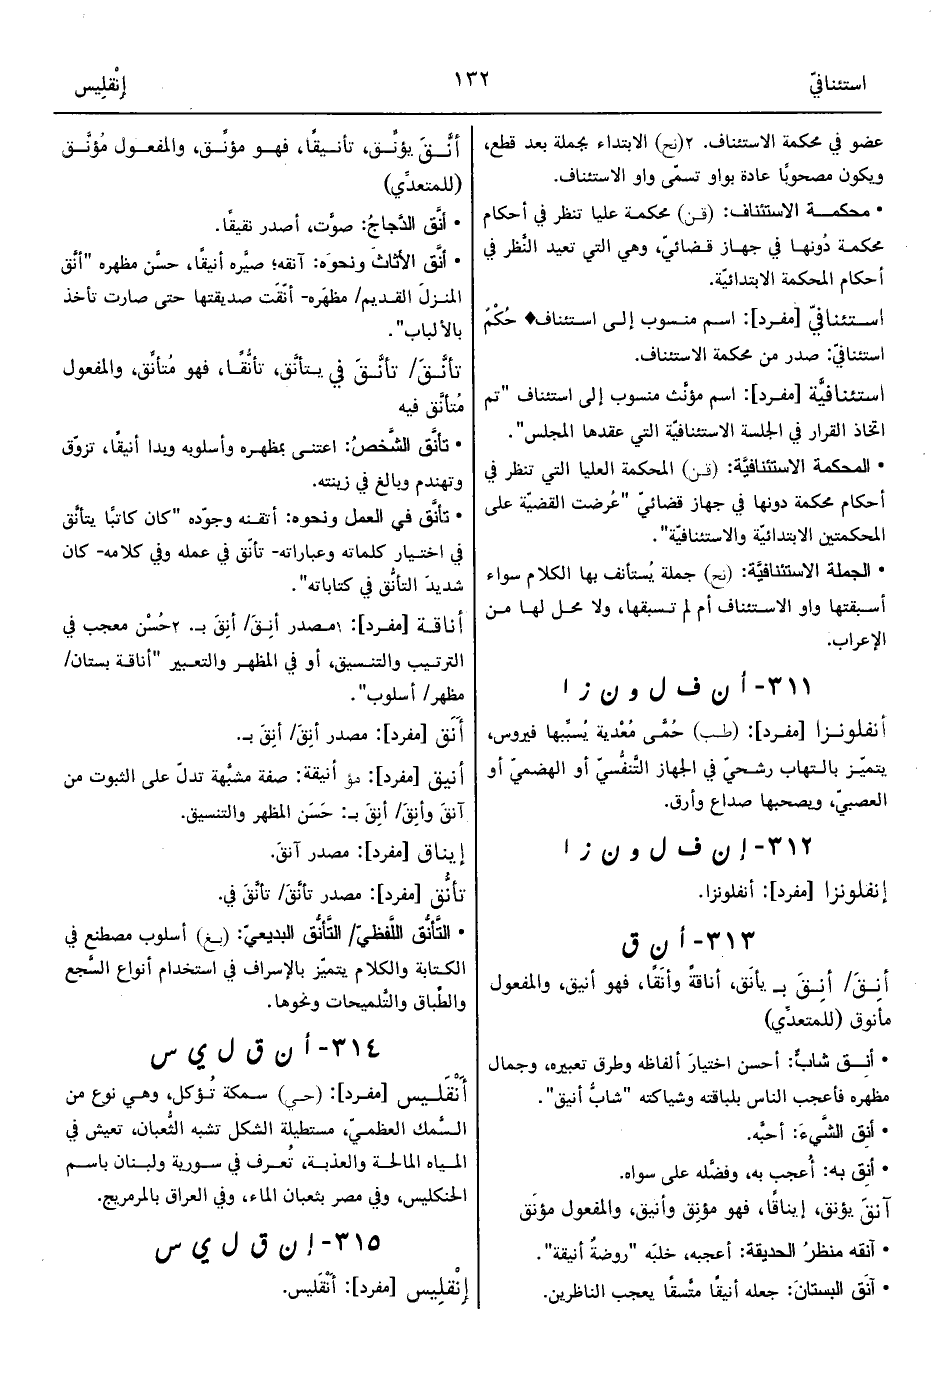 استئنافيّ
١٣٢
إنْقلِيس
عضو في محكمة الاستئناف. ٢(نح) الابتداء بجملة بعد قطع،
ويكون مصحوبًا عادة بواو تسمّى واو الاستئناف.
• محكمـة الاستئناف: (قن) محكمة عليا تنظر في أحكام
محكمة دُونها في جهاز قضائيّ، وهي التي تعيد النَّظر في
أحكام المحكمة الابتدائيّة.
استئنافيّ [مفرد]: اسم منسوب إلى استئناف♦ حُكْمٌ
استئنافيّ: صدر من محكمة الاستئناف.
استئنافيَّة [مفرد]: اسم مؤنَّث منسوب إلى استئناف "تم
اتخاذ القرار في الجلسة الاستئنافية التي عقدها المجلس".
• المحكمة الاستئنافيَّة: (قن) المحكمة العليا التي تنظر في
أحكام محكمة دونها في جهاز قضائيّ "عُرضت القضيّة على
المحكمتين الابتدائيّة والاستئنافيّة".
• الجملة الاستئنافيَّة: (نح) جملة يُستأنف بها الكلام سواء
أسبقتها واو الاستئناف أم لم تسبقها، ولا محل لها من
الإعراب.
٣١١- أ ن ف ل و ن ز ا
أنفلونزا [مفرد]: (طب) حُمَّى مُعْدية يُسبِّبها فيروس،
يتميّز بالتهاب رشحيّ في الجهاز التَّنفُّسيّ أو الهضميّ أو
العصبيّ، ويصحبها صداع وأرق.
٣١٢- إ ن ف ل و ن ز ا
إنفلونزا [مفرد]: أنفلونزا.
٣١٣- أ ن ق
أنِقَ/ أنِقَ بـ يأنَق، أناقةً وأنَقًا، فهو أنيق، والمفعول
مأنوق (للمتعدِّي)
• أنِق شابٌّ: أحسن اختيارَ ألفاظه وطرق تعبيره، وجمال
مظهره فأعجب الناس بلباقته وشياكته "شابٌّ أنيق".
• أنِق الشَّيءَ: أحبَّه.
• أنِق به: أُعجب به، وفضَّله على سواه.
آنقَ يؤنق، إيناقًا، فهو مؤنِق وأنيق، والمفعول مؤنَق
• آنقه منظرُ الحديقة: أعجبه، خلبَه "روضةٌ أنيقة".
• آنَق البستانَ: جعله أنيقًا متَّسقًا يعجب الناظرين.
أنَّـقَ يؤنِّـق، تأنـيقًا، فهو مؤنِّـق، والمفعـول مُؤنَّـق
(للمتعدِّي)
• أنَّق الدَّجاجُ: صوَّت، أصدر نقيقًا.
• أنَّق الأثاثَ ونحوَه: آنقه؛ صيَّره أنيقًا، حسَّن مظهره "أنَّق
المنزلَ القديم/ مظهَره- أنَّقَت صديقتها حتى صارت تأخذ
بالألباب".
تأنَّـقَ/ تأنَّـقَ في يـتأنَّق، تأنُّقًـا، فهو مُتأنِّق، والمفعول
مُتأنَّق فيه
• تأنَّق الشَّخصُ: اعتنى بمظهره وأسلوبه وبدا أنيقًا، تزوّق
وتهندم وبالغ في زينته.
• تأنَّق في العمل ونحوه: أتقنه وجوّده "كان كاتبًا يتأنَّق
في اختيار كلماته وعباراته- تأنّق في عمله وفي كلامه- كان
شديدَ التأنُّق في كتاباته".
أناقة [مفرد]: ١مصدر أنِقَ/ أنِقَ بـ. ٢حُسْن معجب في
الترتيب والتنسيق، أو في المظهر والتعبير "أناقة بستان/
مظهر/ أسلوب".
أَنَق [مفرد]: مصدر أنِقَ/ أنِقَ بـ.
أنيق [مفرد]: مؤ أنيقة: صفة مشبَّهة تدلّ على الثبوت من
آنقَ وأنِقَ/ أنِقَ بـ: حَسَن المظهر والتنسيق.
إيناق [مفرد]: مصدر آنقَ.
تأنُّق [مفرد]: مصدر تأنَّقَ/ تأنَّقَ في.
• التَّأنُّق اللَّفظيّ/ التَّأنُّق البديعيّ: (بغ) أسلوب مصطنع في
الكتابة والكلام يتميّز بالإسراف في استخدام أنواع السَّجع
والطِّباق والتَّلميحات ونحوها.
٣١٤- أ ن ق ل ي س
أَنْقَلَـيس [مفرد]: (حي) سمكة تُؤكل، وهي نوع من
السَّمك العظميّ، مستطيلة الشكل تشبه الثُّعبان، تعيش في
المياه المالحة والعذبة، تُعرف في سورية ولبنان باسم
الحنكليس، وفي مصر بثعبان الماء، وفي العراق بالمرمريج.
٣١٥- إ ن ق ل ي س
إنْقلِيس [مفرد]: أَنْقَليس.